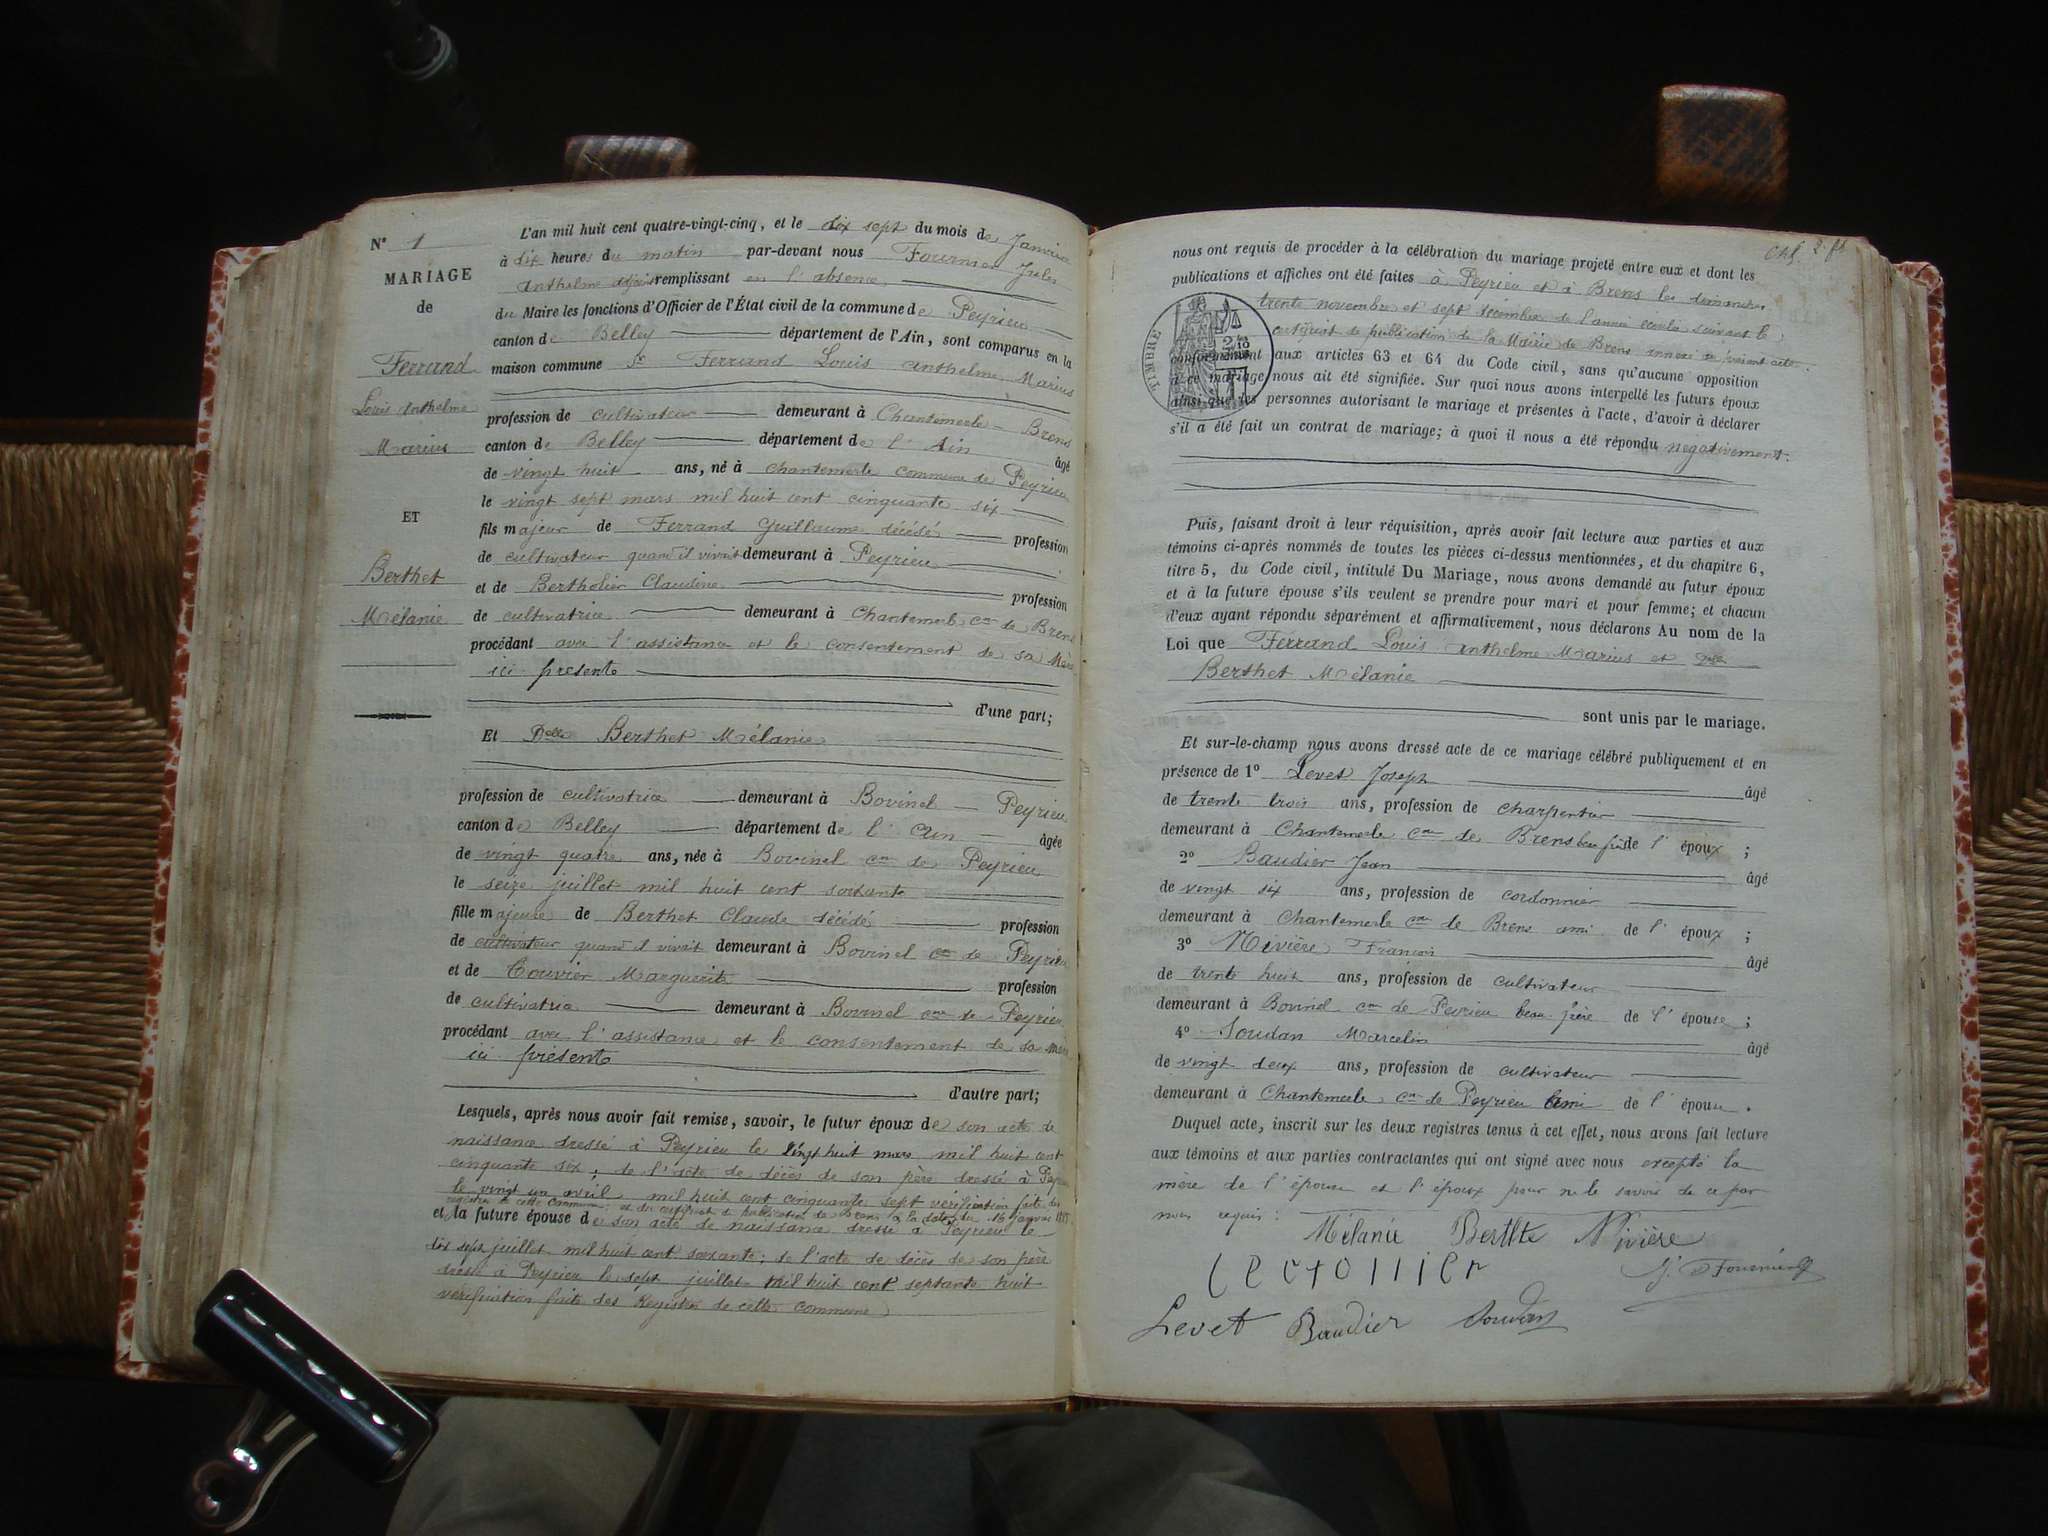 N° 1
MARIAGE
de
Ferrand
Louis Anthelme
Marius
ET
Berthet
Mélanie
L'an mil huit cent quatre-vingt-cinq, et le dix sept du mois de Janvier
à dix heures du matin par-devant nous Fournier Jules
Anthelme adjoint remplissant en l'absence
du Maire les fonctions d'Officier de l'État civil de la commune de Peyrieu
canton de Belley département de l'Ain, sont comparus en la
maison commune Sr Ferrand Louis Anthelme Marius
profession de cultivateur demeurant à Chantemerle - Brens
canton de Belley département de l'Ain âgé
de vingt huit ans, né à Chantemerle commune de Peyrieu
le vingt sept mars mil huit cent cinquante six
fils majeur de Ferrand Guillaume décédé profession
de cultivateur quand il vivait demeurant à Peyrieu
et de Bertholier Claudine profession
de cultivatrice demeurant à Chantemerle cne de Brens
procédant avec l'assistance et le consentement de sa mère
ici présente
d'une part;
Et Delle Berthet Mélanie
profession de cultivatrice demeurant à Bovinel - Peyrieu
canton de Belley département de l'Ain âgée
de vingt quatre ans, née à Bovinel cne de Peyrieu
le seize juillet mil huit cent soixante
fille majeure de Berthet Claude décédé profession
de cultivateur quand il vivait demeurant à Bovinel cne de Peyrieu
et de Couvier Marguerite profession
de cultivatrice demeurant à Bovinel cne de Peyrieu
procédant avec l'assistance et le consentement de sa mère
ici présente
d'autre part;
Lesquels, après nous avoir fait remise, savoir, le futur époux de son acte de
naissance dressé à Peyrieu le vingt huit mars mil huit cent
cinquante six; de l'acte de décès de son père dressé à Peyrieu
le vingt un avril mil huit cent cinquante sept vérification faite des
registres de cette commune; et du certificat de publication de Brens à la date du 16 janvier 1885
et la future épouse de son acte de naissance dressé à Peyrieu le
dix sept juillet mil huit cent soixante; de l'acte de décès de son père
dressé à Peyrieu le sept juillet mil huit cent septante huit
vérification faite des Registres de cette commune
nous ont requis de procéder à la célébration du mariage projeté entre eux et dont les
publications et affiches ont été faites à Peyrieu et à Brens les dimanches
trente novembre et sept décembre de l'année écoulée suivant le
certificat de publication de la Mairie de Brens annexé au présent acte.
TIMBRE
conformément aux articles 63 et 64 du Code civil, sans qu'aucune opposition
à ce mariage nous ait été signifiée. Sur quoi nous avons interpellé les futurs époux
ainsi que les personnes autorisant le mariage et présentes à l'acte, d'avoir à déclarer
s'il a été fait un contrat de mariage; à quoi il nous a été répondu négativement.
Puis, faisant droit à leur réquisition, après avoir fait lecture aux parties et aux
témoins ci-après nommés de toutes les pièces ci-dessus mentionnées, et du chapitre 6,
titre 5, du Code civil, intitulé Du Mariage, nous avons demandé au futur époux
et à la future épouse s'ils veulent se prendre pour mari et pour femme; et chacun
d'eux ayant répondu séparément et affirmativement, nous déclarons Au nom de la
Loi que Ferrand Louis Anthelme Marius et Delle
Berthet Mélanie
sont unis par le mariage.
Et sur-le-champ nous avons dressé acte de ce mariage célébré publiquement et en
présence de 1° Levet Joseph âgé
de trente trois ans, profession de charpentier
demeurant à Chantemerle cne de Brens beau frère de l'époux;
2° Baudier Jean âgé
de vingt six ans, profession de cordonnier
demeurant à Chantemerle cne de Brens ami de l'époux;
3° Nivière François âgé
de trente huit ans, profession de cultivateur
demeurant à Bovinel cne de Peyrieu beau-frère de l'épouse;
4° Soudan Marcelin âgé
de vingt deux ans, profession de cultivateur
demeurant à Chantemerle cne de Peyrieu ami de l'épouse.
Duquel acte, inscrit sur les deux registres tenus à cet effet, nous avons fait lecture
aux témoins et aux parties contractantes qui ont signé avec nous excepté la
mère de l'épouse et l'époux pour ne le savoir de ce par
nous requis:
Mélanie Berthte Nivière
J. Fournier
Levet Baudier Soudan